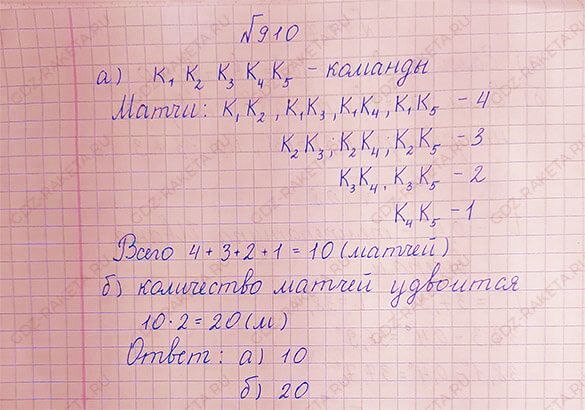 №910
а) К₁ К₂ К₃ К₄ К₅ – команды
Матчи: К₁К₂, К₁К₃, К₁К₄, К₁К₅ – 4
К₂К₃; К₂К₄; К₂К₅ – 3
К₃К₄, К₃К₅ – 2
К₄К₅ – 1
Всего 4+3+2+1=10 (матчей)
б) количество матчей удвоится
10·2=20(м)
Ответ: а) 10
б) 20
GDZ-RAKETA.RU